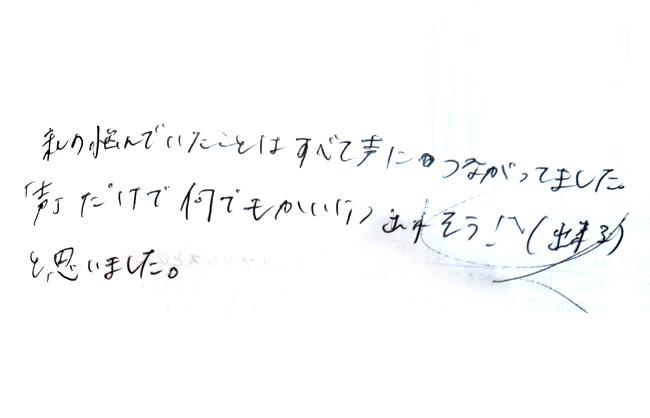 私の悩んでいたことはすべて声につながってました。
「声」だけで何でもかいけつ出来そう!!(出来る)
と思いました。